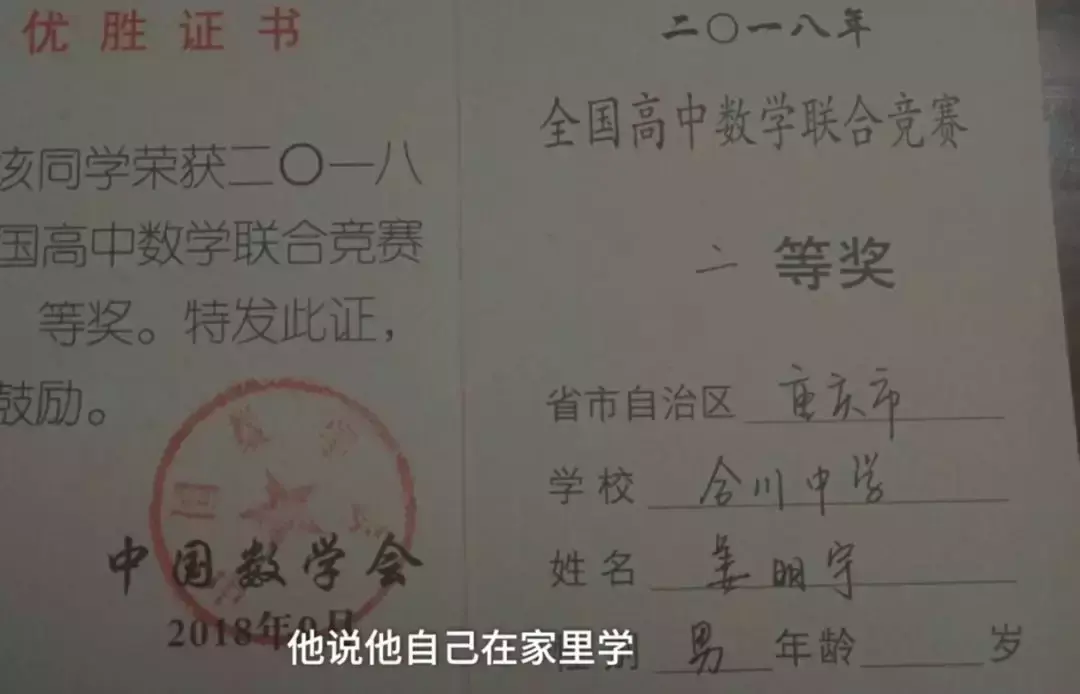 优胜证书
该同学荣获二〇一八
国高中数学联合竞赛
等奖。特发此证，
鼓励。
中国数学会
2018年9月
二〇一八年
全国高中数学联合竞赛
二等奖
省市自治区 重庆市
学校 合川中学
姓名 姜明宇
男 年龄 岁
他说他自己在家里学